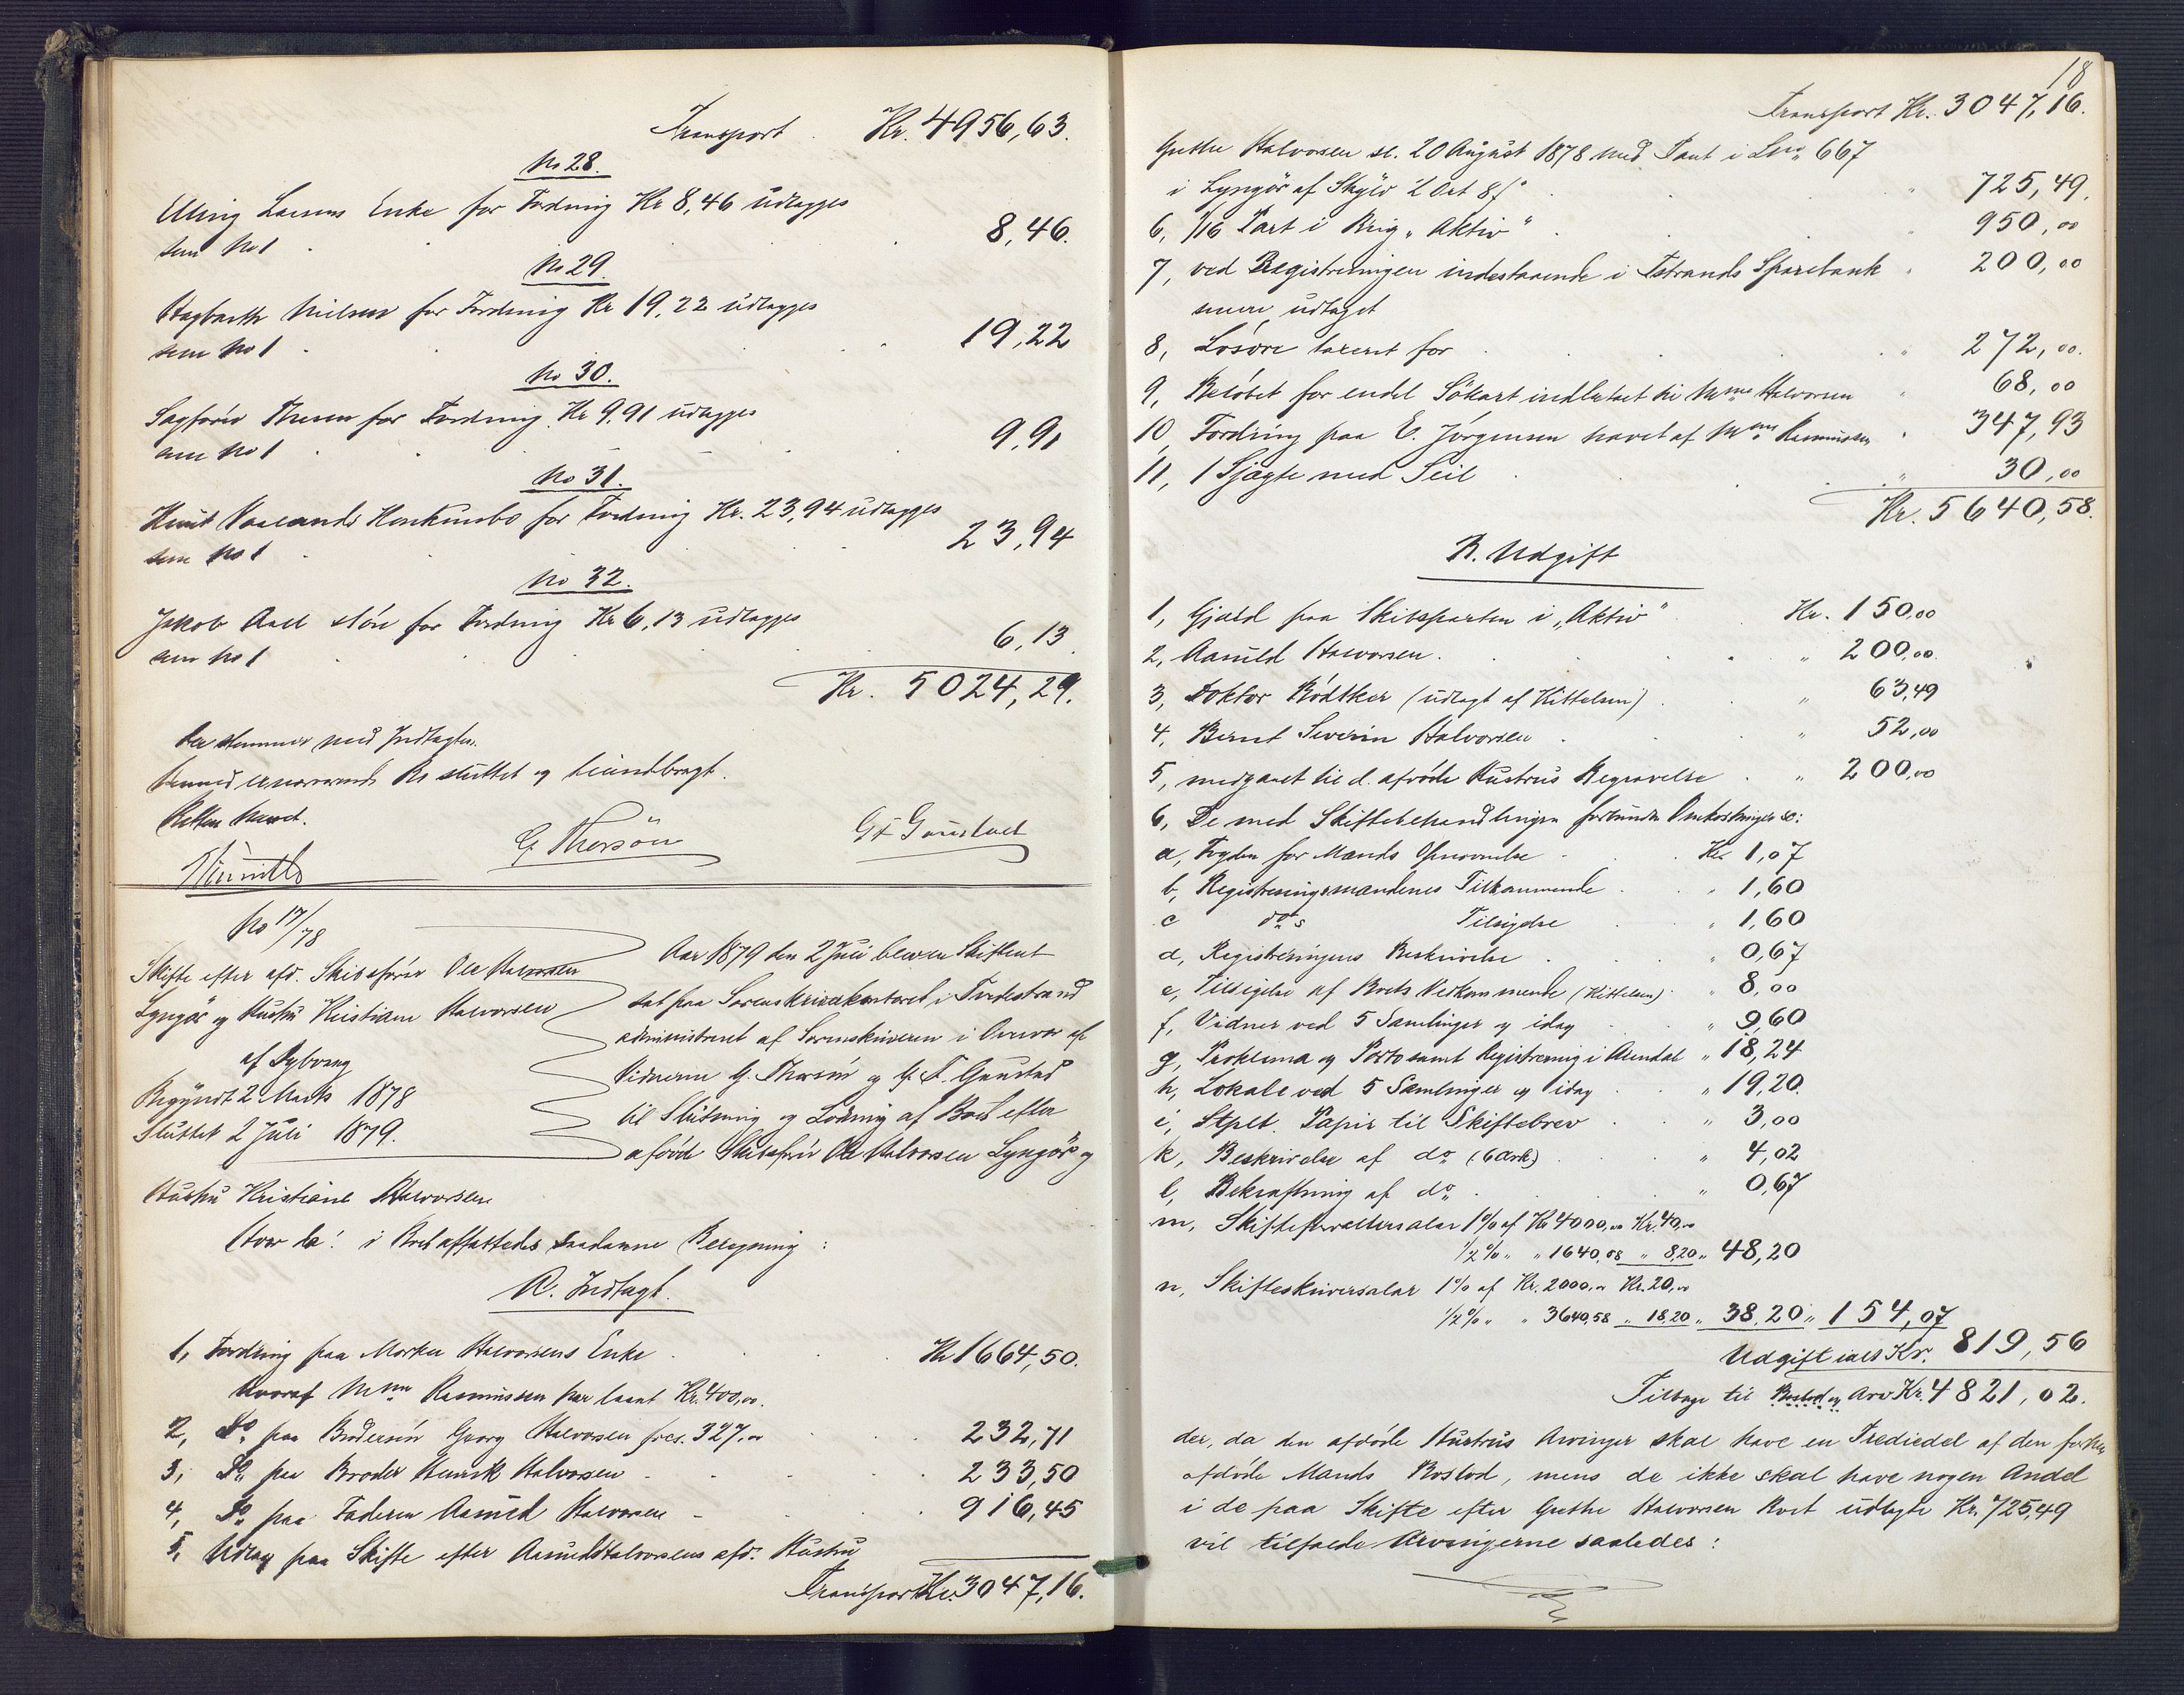 Transport Kr. 4956,63.
No 28.
Elling Larsens Enke for Fordring Kr 8,46 udlægges
som No 1 8,46.
No 29.
Hagbarth Nielsen for Fordring Kr 19,22 udlægges
som No 1 19,22
No 30.
Sagfører for Fordring Kr 9,91 udlægges
som No 1 9,91
No 31.
Knut Vaalands Konkursbo for Fordring Kr. 23,94 udlægges
som No 1 23,94
No 32.
Jakob Aall for Fordring Kr 6,13 udlægges
som No 1 6,13.
Kr. 5024,29.
der stemmer med Indtægten.
Bo sluttet og tilendebragt.
Retten hævet.
G. Thorsön
No 17/78
Skifte efter afd. Skibsfører Ole Halvorsen
Lyngör og Hustru Kristiane Halvorsen
af Dybvaag
Begyndt 2 Marts 1878
Sluttet 2 Juli 1879.
Aar 1879 den 2 Juli blev en Skifteret
sat paa Sorenskriverkontoret i Tvedestrand
administreret af Sorenskriveren i Overvær af
Vidnerne G. Thorsön og G. F. Gunstad
til Slutning og Lodning af Boet efter
afdöde Skibsförer Ole Halvorsen Lyngör og
Hustru Kristiane Halvorsen
Hvor da: i Boet affattedes saadanne Beregning:
A. Indtægt.
1, Fordring paa Morten Halvorsens Enke Kr 1664,50.
hvoraf Mme Rasmussen har laant Kr. 400,00.
2, Do paa Brodersön Georg Halvorsen 327,00 232,71
3, Do paa Broder Henrik Halvorsen 233,50
4, Do paa Faderen Aanuld Halvorsen 916,45
5, Udlæg paa Skifte efter Aanuld Halvorsens afd. Hustru
Transport Kr. 3047,16.
18
Transport Kr. 3047,16.
Grethe Halvorsen sl. 20 August 1878 med Pant i Lno 667
i Lyngör af Skyld 1 Ort 8 ſ 725,49.
6, 1/16 Part i Brig "Aktiv" 950,00
7, ved Registreringen indestaaende i Tstrands Sparebank 200,00
senere udtaget
8, Lösöre taxeret for 272,00.
9, Belöbet for endel Sökart indbetalt til Mme Halvorsen 68,00
10, Fordring paa E. Jörgensen havet af Mme Rasmussen 347,93
11, 1 Sjægte med Seil 30,00
Kr. 5640,58.
B. Udgift
1, Gjæld paa Skibsparten i "Aktiv" Kr. 150,00
2, Aanuld Halvorsen. 200,00.
3, Doktor Bödtker (udlagt af Kittelsen) 63,49
4, Bernt Severin Halvorsen 52,00
5, medgaaet til d. afdöde Hustrus Begravelse 200,00
6, De med Skiftebehandlingen forbundne Omkostninger so:
a, Fogden for Mænds Opnævnelse Kr 1,07
b, Registreringsmændenes Tilkommende 1,60
c do s Tilsigelse 1,60
d, Registreringens Beskrivelse 0,67
e, Tilsigelse af Boets Vedkommende (Kittelsen) 8,00
f, Vidner ved 5 Samlinger og idag 9,60
g, Proklama og Porto samt Registrering i Arendal 18,24
h, Lokale ved 5 Samlinger og idag 19,20.
i, Stplt. Papir til Skiftebrev 3,00
k, Beskrivelse af do (6 Ark) 4,02
l, Bekræftning af do 0,67
m, Skifteforvaltersalær 1% af Kr 4000,00 Kr. 40,00
1/2% " " 1640,58 " 8,20 " 48,20
n, Skifteskriversalær 1% af Kr. 2000,00 Kr. 20,00
1/2% " " 3640,58 " 18,20 " 38,20 " 154,07
Udgift ials Kr. 819,56
Tilbage til Boslod og Arv Kr. 4821,02.
der, da den afdöde Hustrus Arvinger skal have en Trediedel af den forhen
afdöde Mands Boslod, mens de ikke skal have nogen Andel
i de paa Skifte efter Grethe Halvorsen Boet udlagte Kr. 725,49
vil tilfalde Arvingerne saaledes: